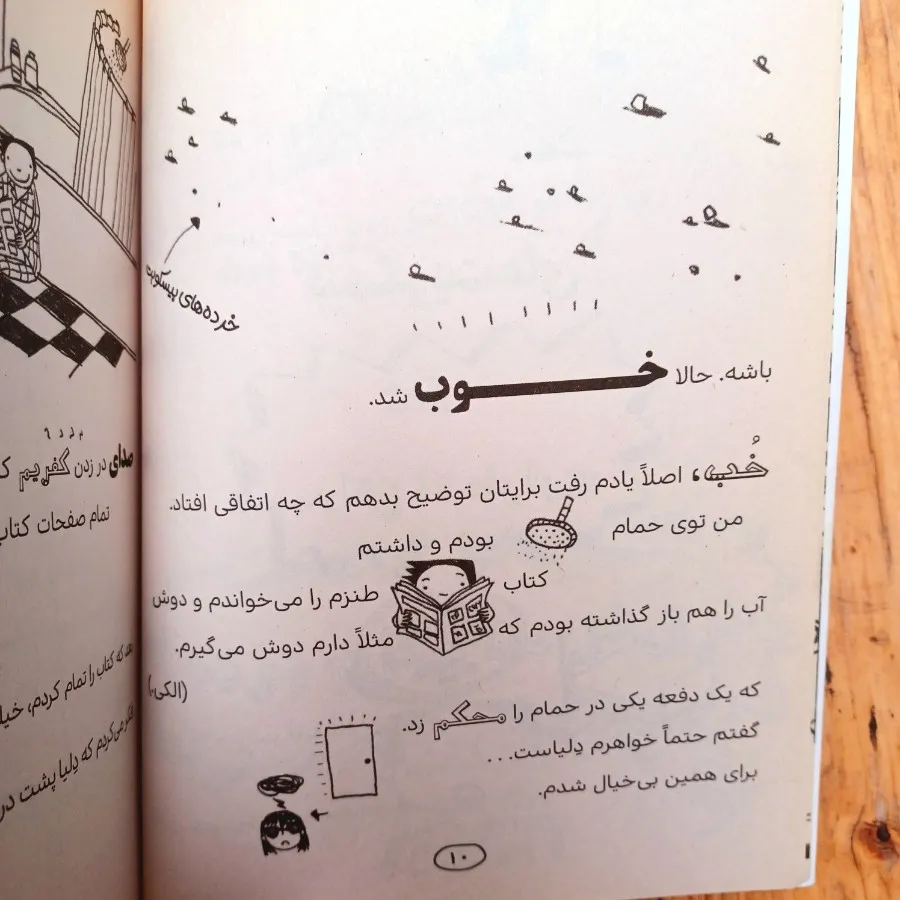 خرده‌های بیسکویت
باشه. حالا خوب شد.
خُب، اصلاً یادم رفت برایتان توضیح بدهم که چه اتفاقی افتاد.
من توی حمام بودم و داشتم
کتاب طنزم را می‌خواندم و دوش
آب را هم باز گذاشته بودم که مثلاً دارم دوش می‌گیرم.
(الکی.)
که یک دفعه یکی در حمام را محکم زد.
گفتم حتماً خواهرم دِلیاست...
برای همین بی‌خیال شدم.
۱۰
صدای در زدن کفریم
تمام صفحات کتاب
که کتاب را تمام کردم،
می‌کردم که دِلیا پشت در